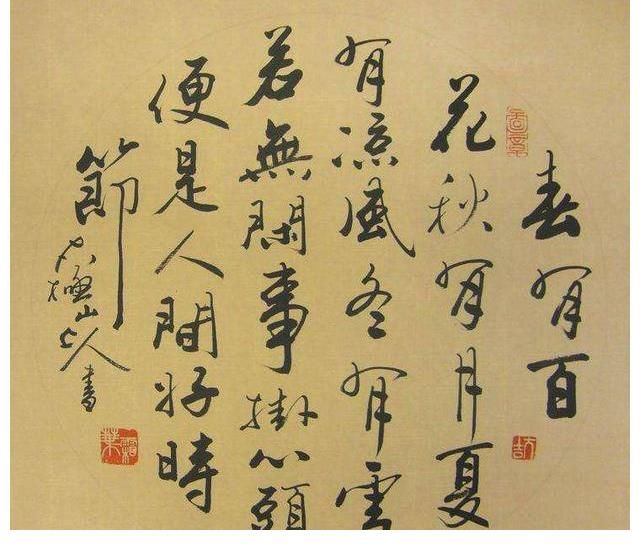 春有百
花秋有月夏
有涼風冬有雪
若無閑事掛心頭
便是人間好時
節
山人書